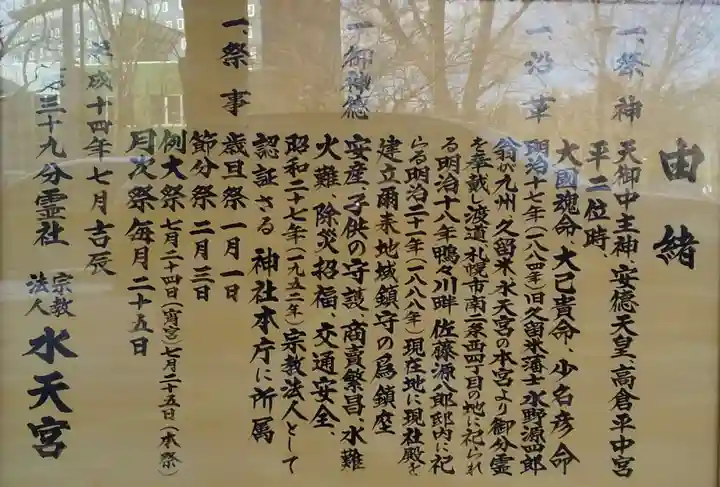 由緒
一、祭神 天御中主神、安徳天皇、高倉平中宮
平二位時、
大國魂命、大己貴命、少名彦命
一、沿革 明治十七年(一八八四年)旧久留米藩士水野源四郎
翁が九州、久留米、水天宮の本宮より御分霊
を奉戴し渡道、札幌市南一条西四丁目の地に祀られ
る明治十八年鴨々川畔 佐藤源八郎邸内に祀
らる明治二十一年(一八八八年)現在地に現社殿を
建立爾来地域鎮守の為鎮座
一、御神徳 安産、子供の守護、商賣繁昌、水難
火難、除災招福、交通安全、
昭和二十七年(一九五二年)宗教法人として
認証さる 神社本庁に所属
一、祭事 歳旦祭 一月一日
節分祭 二月三日
例大祭 七月二十四日(宵宮)七月二十五日(本祭)
月次祭 毎月二十五日
平成十四年七月吉辰
三十九分霊社 宗教法人 水天宮